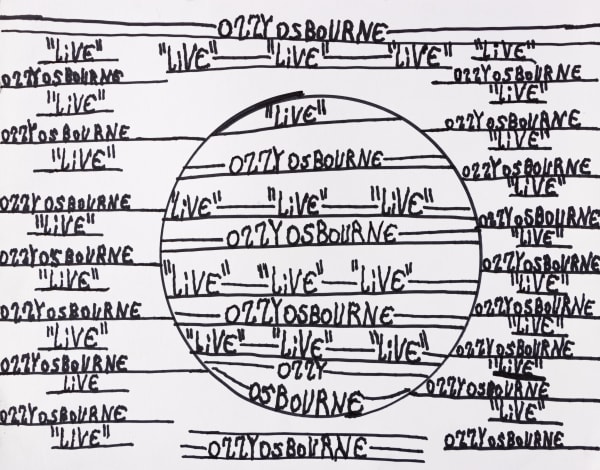 OZZY OSBOURNE
"LiVE" "LiVE" "LiVE"
"LiVE"
OZZYOSBOURNE
"LiVE"
OZZYOSBOURNE
"LiVE"
OZZYOSBOURNE
"LiVE"
OZZYOSBOURNE
"LiVE"
OZZYOSBOURNE
"LiVE"
OZZYOSBOURNE
LiVE
OZZYOSBOURNE
"LiVE"
"LiVE"
OZZYOSBOURNE
"LiVE" "LiVE" "LiVE"
OZZYOSBOURNE
"LiVE" "LiVE" "LiVE"
OZZYOSBOURNE
"LiVE" "LiVE" "LiVE"
OZZY
OSBOURNE
OZZYOSBOURNE
"LiVE"
OZZYOSBOURNE
"LiVE"
OZZYOSBOURNE
"LiVE"
OZZYOSBOURNE
"LiVE"
OZZYOSBOURNE
"LiVE"
OZZYOSBOURNE
"LiVE"
OZZYOSBOURNE
"LiVE"
OZZYOSBOURNE
"LiVE"
OZZYOSBOURNE
"LiVE"
OZZYOSBOURNE